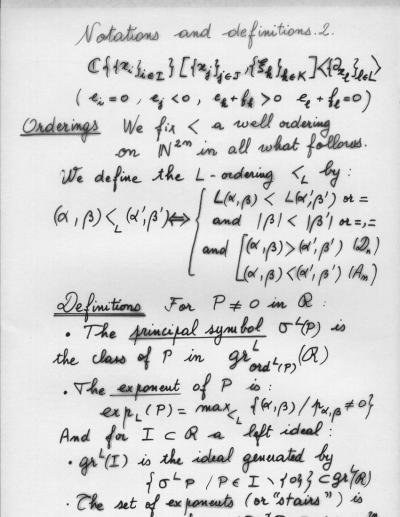 Notations and definitions. 2.
ℂ{{x_i}_{i∈I}}[{x_j}_{j∈J}, {ξ_k}_{k∈K}]<{∂_{x_l}}_{l∈L}>
( e_i = 0 , e_j < 0 , e_k + f_k > 0 e_l + f_l = 0 )
Orderings We fix < a well ordering
on ℕ^{2n} in all what follows.
We define the L-ordering <_L by :
L(α,β) < L(α',β') or =
(α,β) <_L (α',β') ⟺ { and |β| < |β'| or =,=
and [ (α,β) > (α',β') (D_n)
(α,β) < (α',β') (A_n)
Definitions For P ≠ 0 in R :
• The principal symbol σ^L(P) is
the class of P in gr^L_{ord^L(P)}(R)
• The exponent of P is :
exp_L(P) = max_{<_L} {(α,β) / p_{α,β} ≠ 0}
And for I ⊂ R a left ideal :
• gr^L(I) is the ideal generated by
{σ^L P / P ∈ I \ {0}} ⊂ gr^L(R)
• The set of exponents (or "stairs") is